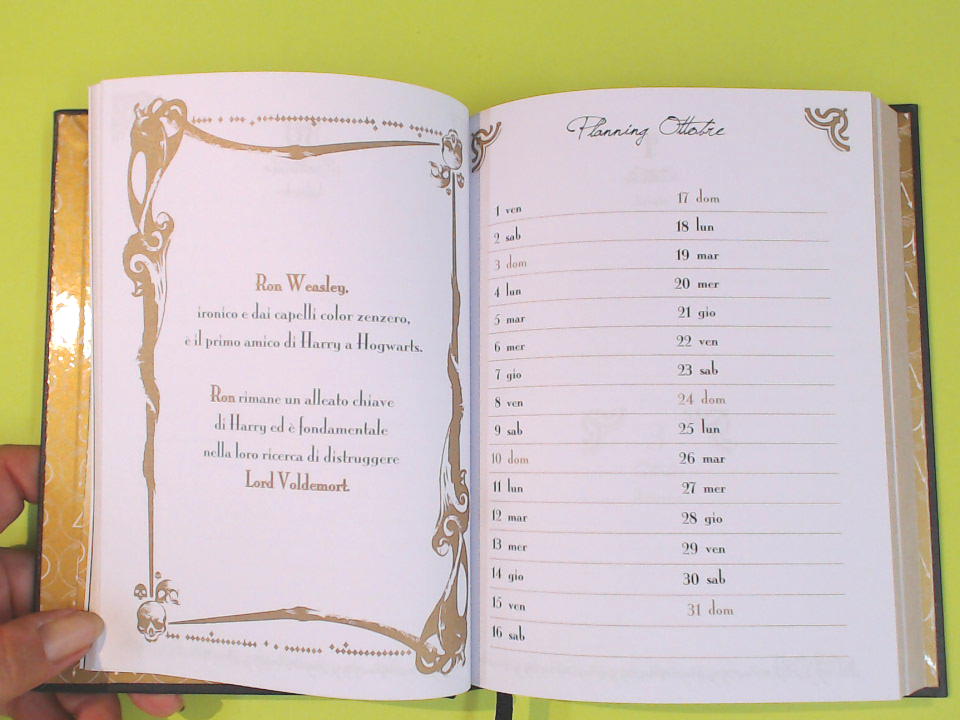 Ron Weasley,
ironico e dai capelli color zenzero,
è il primo amico di Harry a Hogwarts.
Ron rimane un alleato chiave
di Harry ed è fondamentale
nella loro ricerca di distruggere
Lord Voldemort.
Planning Ottobre
1 ven
2 sab
3 dom
4 lun
5 mar
6 mer
7 gio
8 ven
9 sab
10 dom
11 lun
12 mar
13 mer
14 gio
15 ven
16 sab
17 dom
18 lun
19 mar
20 mer
21 gio
22 ven
23 sab
24 dom
25 lun
26 mar
27 mer
28 gio
29 ven
30 sab
31 dom